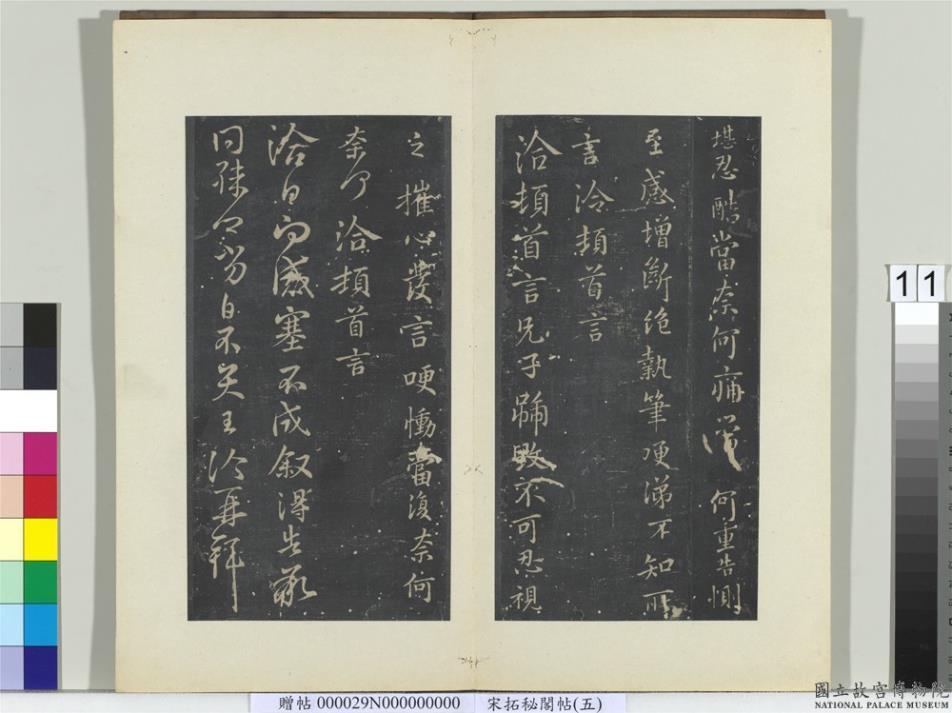 堪忍酷當奈何痛當何重告惻
至感增斷絶執筆哽涕不知所
言洽頓首言
洽頓首言兄子號毀不可忍視
之摧心發言哽慟當復奈何
奈何洽頓首言
洽白向感塞不成叙得告承
問白不具王洽再拜
11
贈帖 000029N000000000 宋拓秘閣帖(五)
國立故宮博物院
NATIONAL PALACE MUSEUM